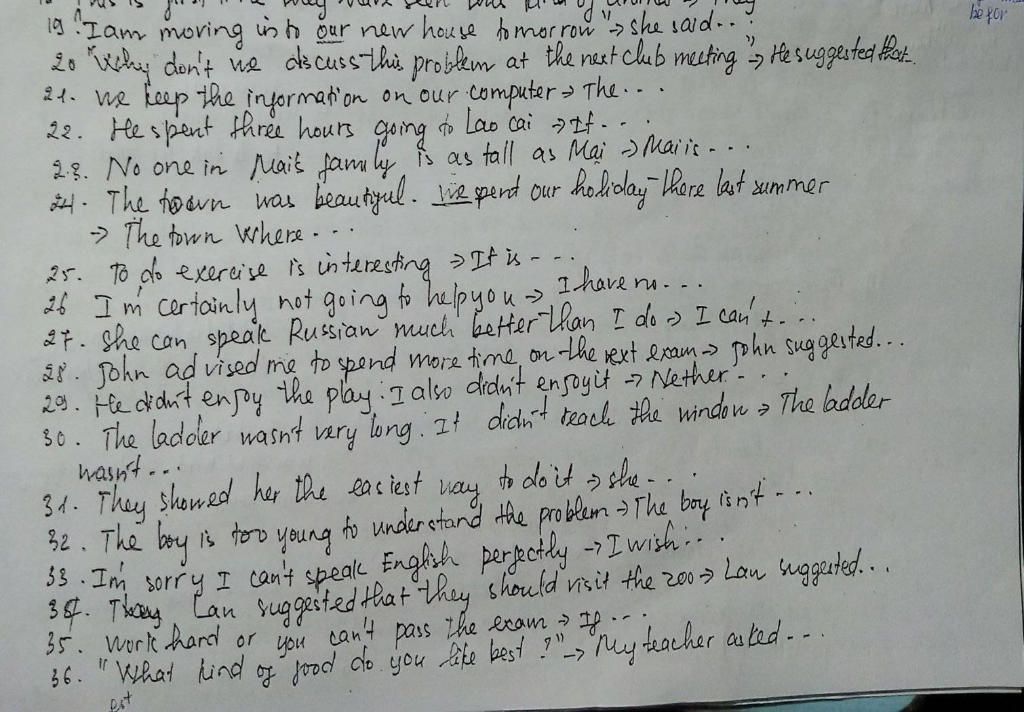 18 This is first time they have seen this kind of animal → They
19. "I am moving into our new house tomorrow" → she said...
befor
20 "Why don't we discuss this problem at the next club meeting" → He suggested that..
21. we keep the information on our computer → The...
22. He spent three hours going to Lao Cai → It...
23. No one in Mai's family is as tall as Mai → Mai is...
24. The town was beautiful. We spent our holiday there last summer
→ The town where...
25. To do exercise is interesting → It is - - -
26 I'm certainly not going to help you → I have no...
27. she can speak Russian much better than I do → I can't...
28. John advised me to spend more time on the next exam → John suggested...
29. He didn't enjoy the play. I also didn't enjoy it → Nether - ...
30. The ladder wasn't very long. It didn't reach the window → The ladder
wasn't ...
31. They showed her the easiest way to do it → she - ..
32. The boy is too young to understand the problem → The boy isn't - - -
33. I'm sorry I can't speak English perfectly → I wish...
34. Lan suggested that they should visit the zoo → Lan suggested...
35. work hard or you can't pass the exam → If ...
36. "What kind of food do you like best ?" → My teacher asked - - -